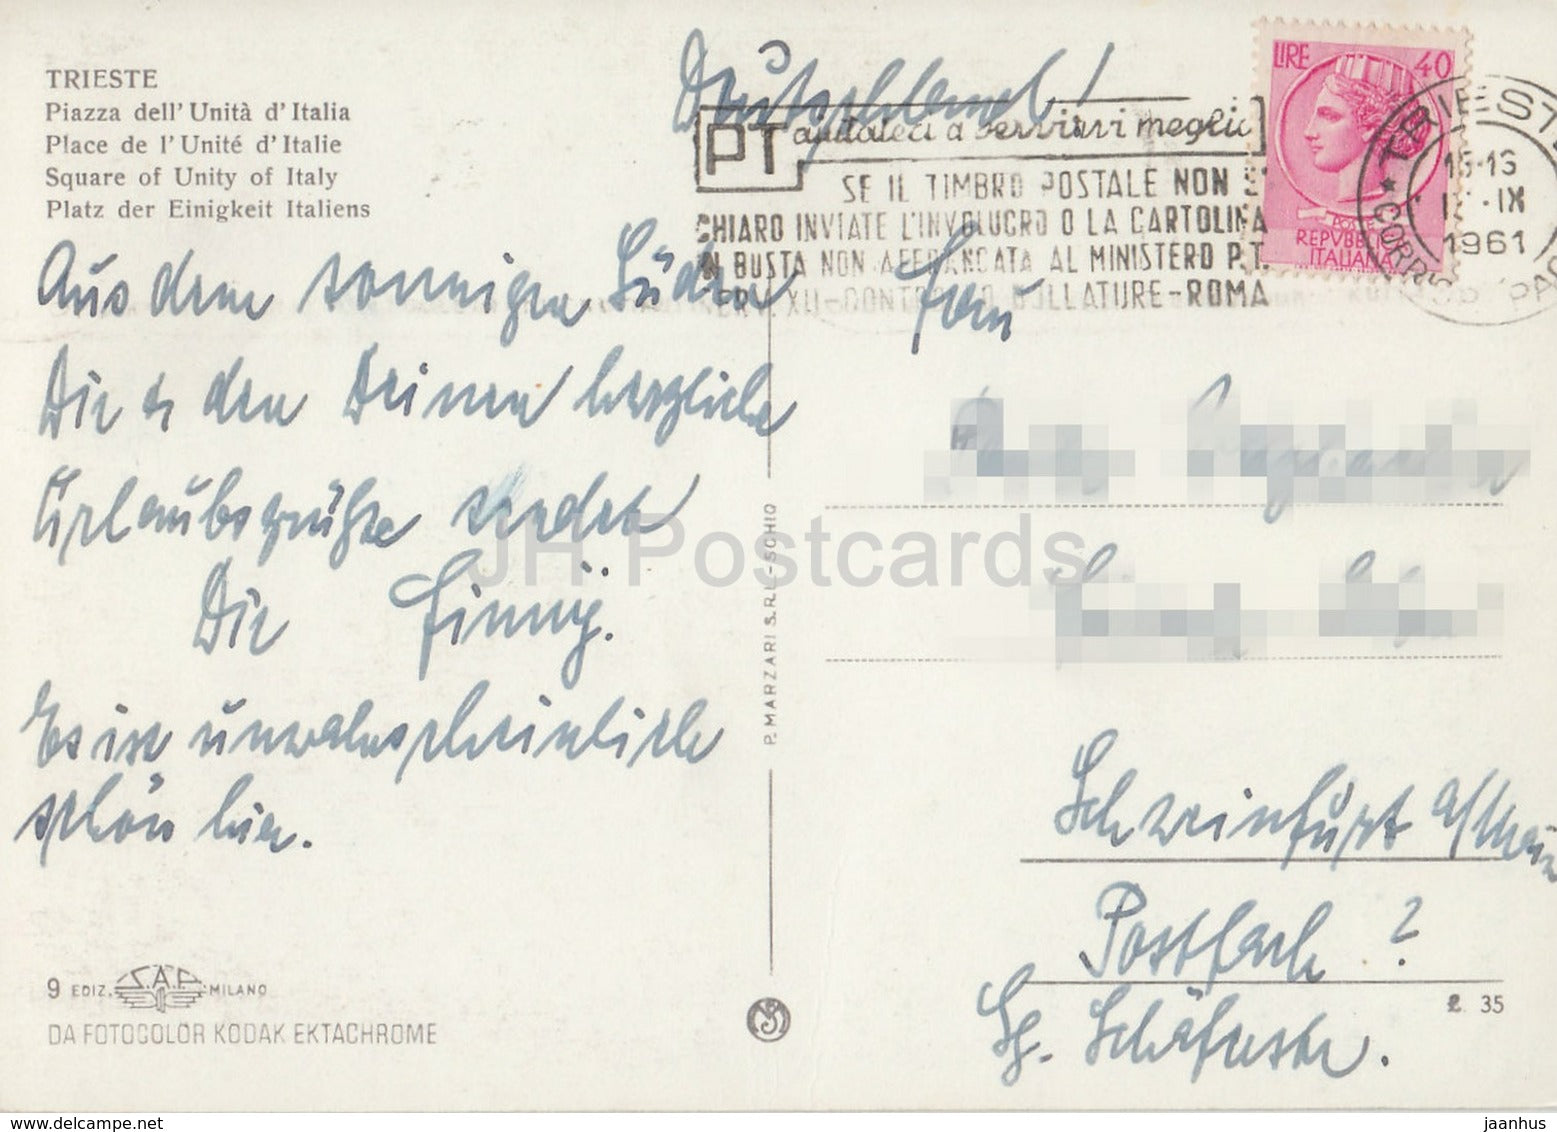 TRIESTE
Piazza dell' Unità d' Italia
Place de l' Unité d' Italie
Square of Unity of Italy
Platz der Einigkeit Italiens
Deutschland!
PT aiutateci a servirvi meglio
SE IL TIMBRO POSTALE NON E'
CHIARO INVIATE L'INVOLUCRO O LA CARTOLINA
IN BUSTA NON AFFRANCATA AL MINISTERO P.T.
SERV. XII-CONTROLLO BOLLATURE-ROMA
LIRE 40
POSTE
REPVBBLICA
ITALIANA
TRIESTE
CORRISP
15-16
IX
1961
Aus dem sonnigen Süden
Dir & den Deinen herzliche
Urlaubsgrüße sendet
Dir
Es ist unwahrscheinlich
schön hier.
Frau
Schweinfurt a/Main
Postfach ?
Schäfustr.
P. MARZARI S.R.L.-SCHIO
9 EDIZ. S.A.F. MILANO
DA FOTOCOLOR KODAK EKTACHROME
35
JH Postcards
jaanhus